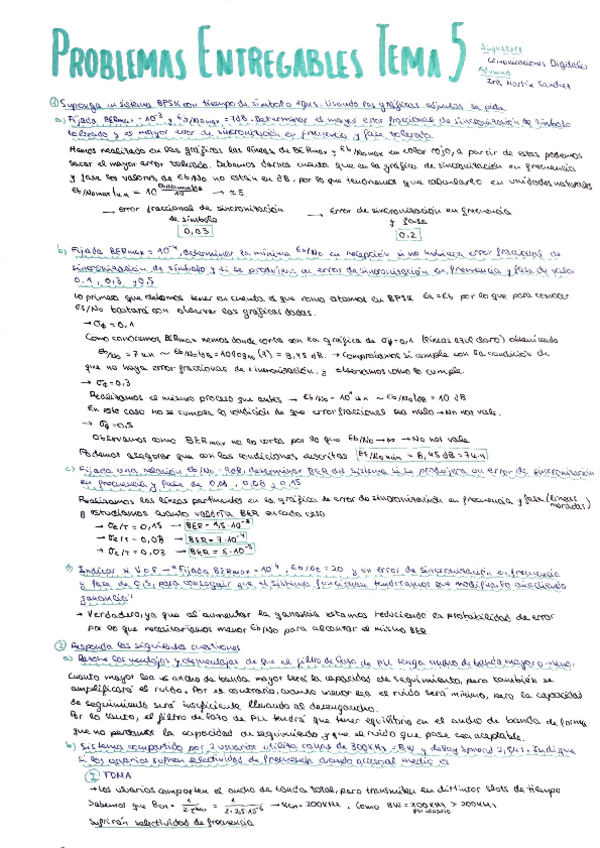 PROBLEMAS ENTREGABLES TEMA 5
Asignatura
Comunicaciones Digitales
Alumna
① Suponga un sistema BPSK con tiempo de símbolo 4µs. Usando las gráficas adjuntas se pide
a) Fijada BERmax = 10⁻³ y Eb/No max = 7dB. Determinar el mayor error fraccional de sincronización de símbolo
tolerado y el mayor error de sincronización en frecuencia y fase tolerado.
Hemos realizado en las gráficas las líneas de BERmax y Eb/No max en color rojo, a partir de estas podemos
sacar el mayor error tolerado. Debemos darnos cuenta que en la gráfica de sincronización en frecuencia
y fase los valores de Eb/No no están en dB, por lo que tendremos que calcularlo en unidades naturales
→ error fraccional de sincronización → Error de sincronización en frecuencia
de símbolo y fase
0,03 0.2
b) Fijada BERmax = 10⁻⁴, determinar la mínima Eb/No en recepción si no hubiera error fraccional de
sincronización de símbolo y si se produjera un error de sincronización en frecuencia y fase de valor
0,1, 0,3 y 0,5
Lo primero que debemos tener en cuenta es que como estamos en BPSK Es=Eb por lo que para conocer
Eb/No bastará con observar las gráficas dadas.
→ σφ = 0,1
Como conocemos BERmax vemos donde corta con la gráfica de σφ=0,1 (líneas azul claro) obteniendo
Eb/No = 7 u.n ~ Eb/No|dB = 10log₁₀(7) = 8,45 dB. → Comprobamos si cumple con la condición de
que no haya error fraccional de sincronización, y observamos como lo cumple.
→ σφ = 0,3
Realizamos el mismo proceso que antes → Eb/No = 10 u.n ~ Eb/No|dB = 10 dB
En este caso no se cumple la condición de que error fraccional sea nulo → No nos vale.
→ σφ = 0,5
Observamos como BERmax no lo corta por lo que Eb/No → ∞ → No nos vale
Podemos asegurar que con las condiciones descritas Eb/No min = 8,45 dB = 7u.n
c) Fijada una relación Eb/No = 9dB, determinar BER del sistema si se produjera un error de sincronización
en frecuencia y fase de 0,03, 0,08 y 0,15
Realizamos las líneas pertinentes en la gráfica de error de sincronización en frecuencia y fase (líneas
moradas)
y estudiamos cuanto valdría BER en cada caso
→ σε/T = 0,15 → BER = 1,5·10⁻²
→ σε/T = 0,08 → BER = 7·10⁻⁴
→ σε/T = 0,03 → BER = 5·10⁻⁵
d) Indicar si V o F → "Fijada BERmax = 10⁻⁴, Eb/No = 20 y un error de sincronización en frecuencia
y fase de 0,5, para conseguir que el sistema funcione tendríamos que modificarlo añadiendo
ganancia"
→ Verdadero, ya que al aumentar la ganancia estamos reduciendo la probabilidad de error
por lo que necesitaríamos menor Eb/No para alcanzar el mismo BER
② Responda las siguientes cuestiones
a) Razone las ventajas y desventajas de que el filtro de lazo de PLL tenga ancho de banda mayor o menor.
Cuanto mayor sea el ancho de banda mayor será la capacidad de seguimiento, pero también se
amplificará el ruido. Por el contrario, cuando menor sea el ruido será mínimo, pero la capacidad
de seguimiento será insuficiente llevando al desenganche.
Por lo tanto, el filtro de lazo de PLL tendrá que tener equilibrio en el ancho de banda de forma
que no perdamos la capacidad de seguimiento y que el ruido que pase sea aceptable.
b) Sistema compartido por 2 usuarios utiliza canal de 300KHz = BW y delay spread 2,5µs. Indique
si los usuarios sufren selectividad de frecuencia cuando acceso al medio es
Ⓘ TDMA
→ Los usuarios comparten el ancho de banda total, pero transmiten en distintos slots de tiempo
Sabemos que
Sufrirán selectividad de frecuencia